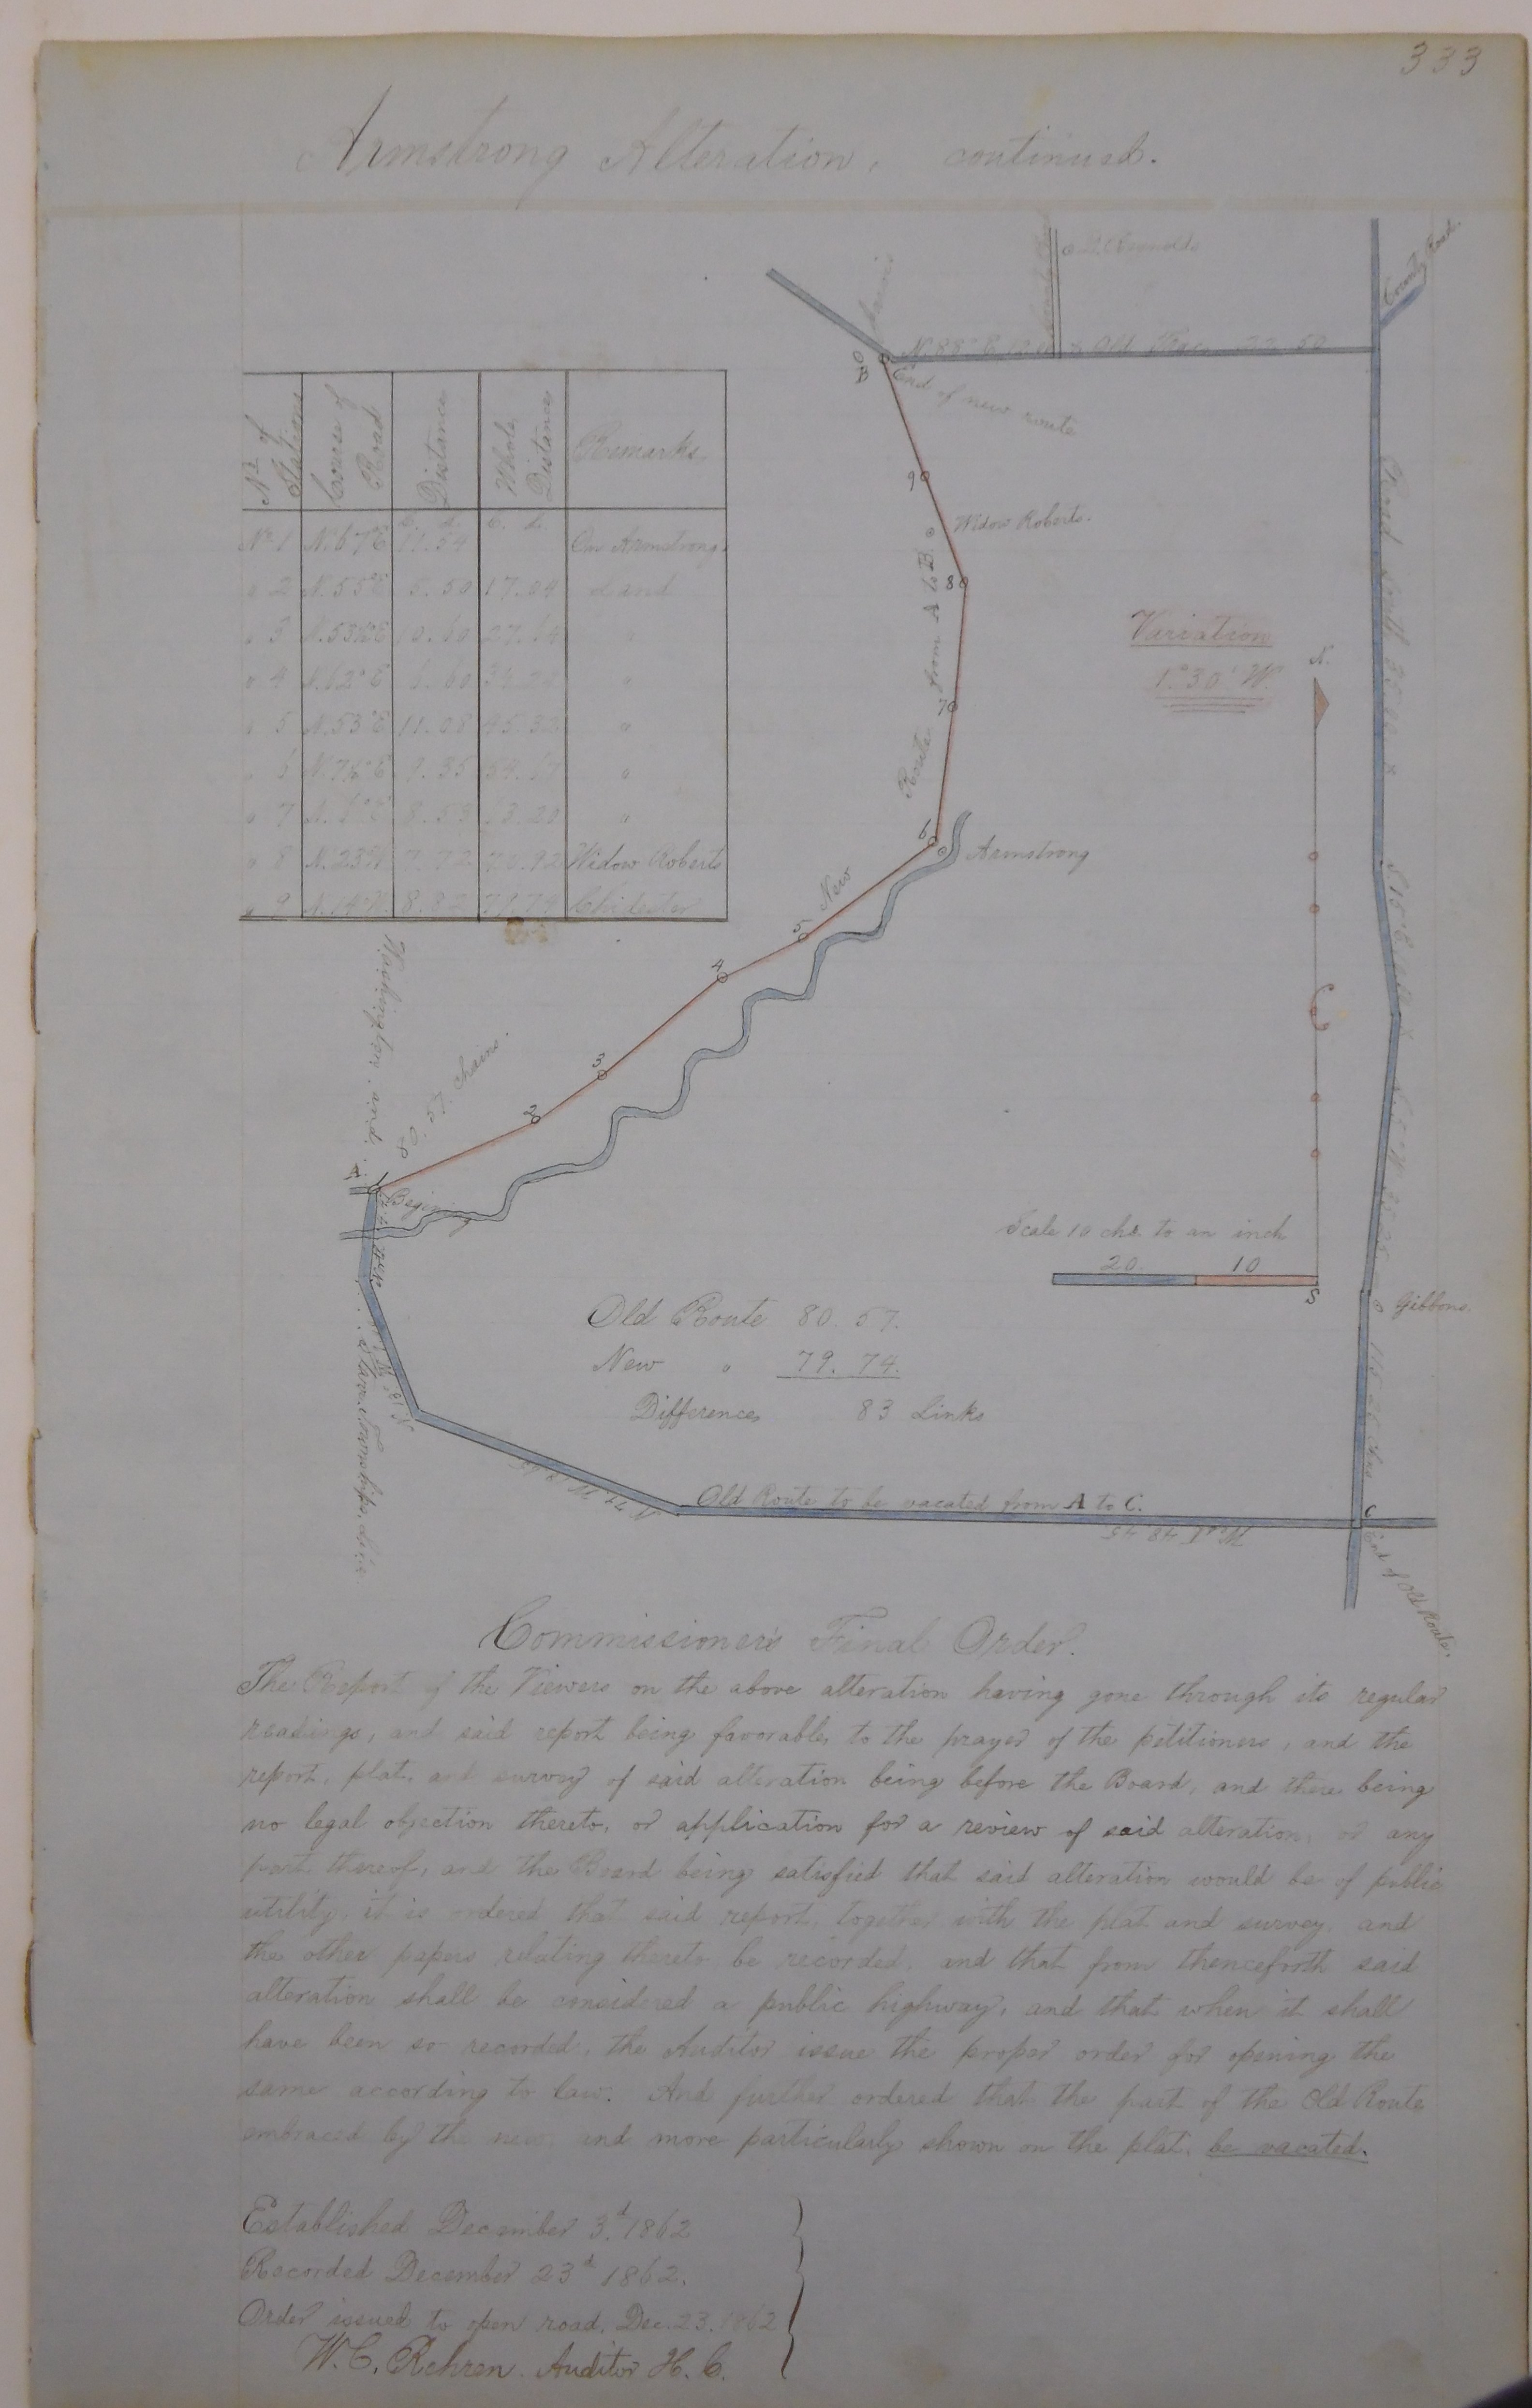 333
Armstrong Alteration, continued.
Reynolds
County Road.
N. 88° E. Old 22.50
0
B
End of new route
No. of Stations
Course of Road
Distance
Whole Distance
Remarks
C. L.
C. L.
No 1 N. 67°E 11.54 On Armstrong,
" 2 N. 55°E 5.50 17.04 Land
" 3 10.60 27.64 "
" 4 N. 62°E 6.60 34.24 "
" 5 N. 53°E 11.08 45.32 "
" 6 9.35 54.67 "
" 7 8.53 63.20 "
" 8 N. 23°W 7.72 70.92 Widow Roberts
" 9 8.82 79.74 Chidester
9
Widow Roberts.
8
7
6
5
4
3
2
1
New Route from A to B.
Armstrong
Variation
1° 30' W.
N.
S
Washington and Starr Townships
80.57 chains.
A
Begining
Scale 10 chs. to an inch
20. 10
Gibbons.
Old Route 80. 57.
New " 79. 74.
Difference 83 Links
Old Route to be vacated from A to C.
West 48.45
C
End of Old Route.
Commissioner's Final Order.
The Report of the Viewers on the above alteration having gone through its regular
readings, and said report being favorable, to the prayer of the petitioners, and the
report, plat, and survey of said alteration being before the Board, and there being
no legal objection thereto, or application for a review of said alteration, or any
part thereof, and the Board being satisfied that said alteration would be of public
utility, it is ordered that said report, together with the plat and survey, and
the other papers relating thereto be recorded, and that from thenceforth said
alteration shall be considered a public highway, and that when it shall
have been so recorded, the Auditor issue the proper order for opening the
same according to law. And further ordered that the part of the Old Route
embraced by the new, and more particularly shown on the plat, be vacated.
Established December 3d. 1862
Recorded December 23d 1862.
Order issued to open road, Dec. 23. 1862
W. C. Rehren. Auditor H. C.